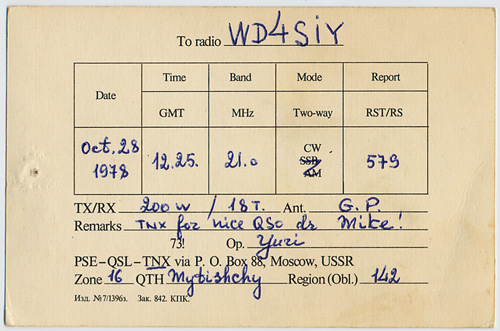 To radio WD4SIY
Date Time Band Mode Report
GMT MHz Two-way RST/RS
Oct. 28 1978 12.25. 21.0 CW SSB AM 579
TX/RX 200 W / 18 T. Ant. G.P.
Remarks TNX for nice QSO dr Mike!
73! Op. Yuri
PSE-QSL-TNX via P. O. Box 88, Moscow, USSR
Zone 16 QTH Mytishchy Region (Obl.) 142
Изд. №7/1396з. Зак. 842. КПК.